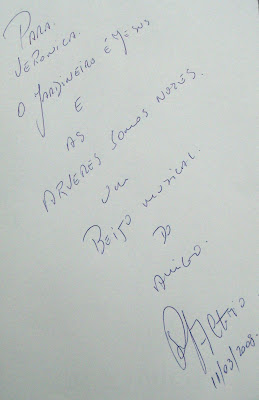 PARA
VERONICA.
O JARDINEIRO É JESUS
E
AS
ARVERES SOMOS NOZES.
UM
BEIJO MUSICAL.
DO
AMIGO.
11/03/2008.